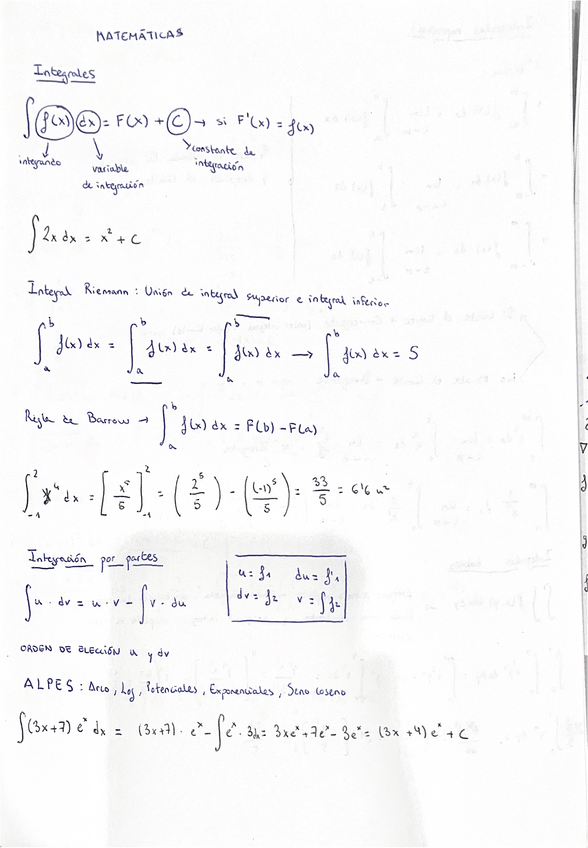 MATEMÁTICAS
Integrales
∫ f(x) dx = F(x) + C → si F'(x) = f(x)
integrando
variable de integración
constante de integración
∫ 2x dx = x² + C
Integral Riemann : Unión de integral superior e integral inferior.
∫ₐᵇ f(x) dx = ∫ₐᵇ f(x) dx = ∫ₐᵇ f(x) dx → ∫ₐᵇ f(x) dx = S
Regla de Barrow → ∫ₐᵇ f(x) dx = F(b) - F(a)
∫₋₁² x⁴ dx = [x⁵/5]₋₁² = (2⁵/5) - ((-1)⁵/5) = 33/5 = 6'6 u²
Integración por partes
∫ u · dv = u · v - ∫ v · du
u = f₁ du = f'₁
dv = f₂ v = ∫ f₂
ORDEN DE ELECCIÓN u y dv
ALPES : Arco, Log, Potenciales, Exponenciales, Seno coseno
∫ (3x+7) eˣ dx = (3x+7) · eˣ - ∫ eˣ · 3dx = 3xeˣ + 7eˣ - 3eˣ = (3x + 4) eˣ + C